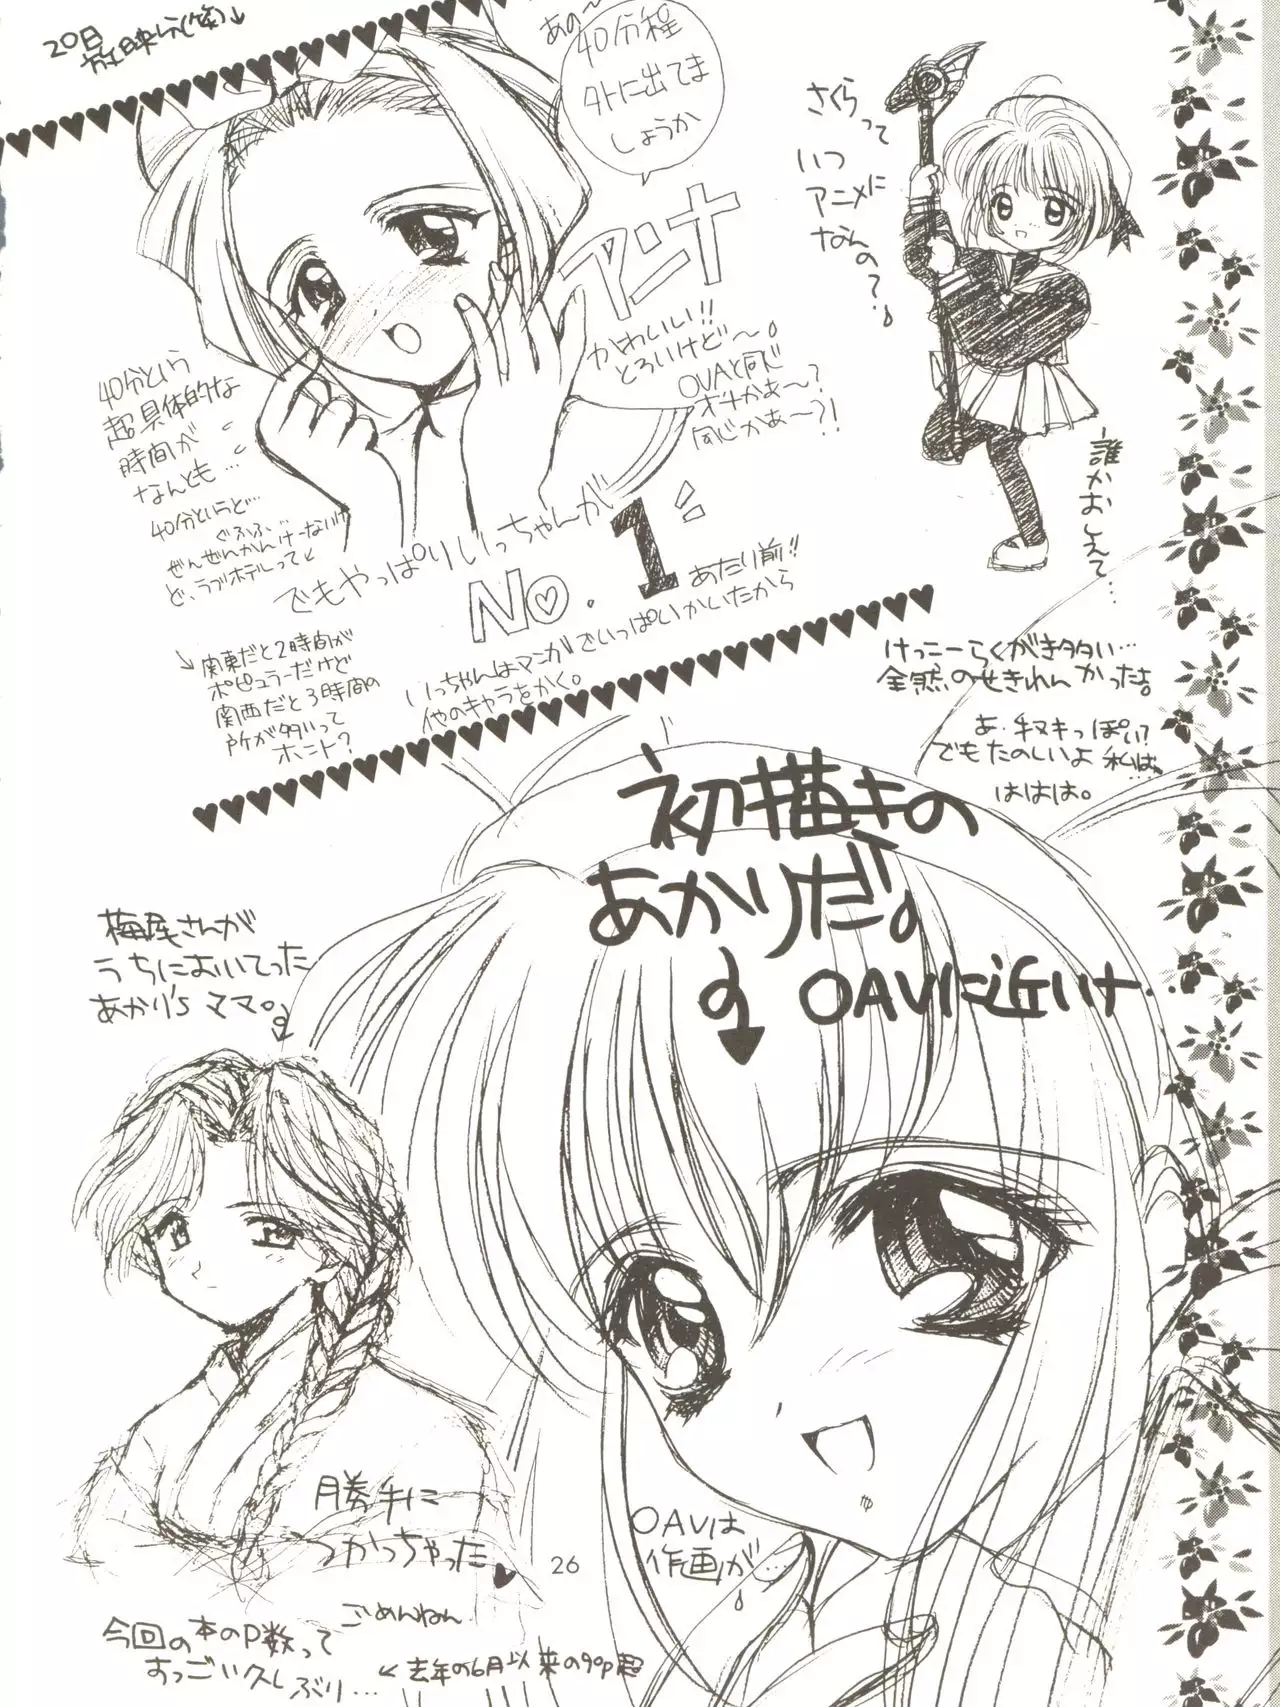 20日
放映分(笑)↓
あの〜
40分程
外に出てま
しょうか
アンナ
かわいい!!
とろいけど〜。
OVAと同じ
オチかぁ〜?
同じかぁ〜?!
さくらって
いつ
アニメに
なんの?
誰かおしえて…
40分という
超具体的な
時間が
なんとも…
40分というと…
ぐふふ
ぜんぜんかんけーないけ
ど、ラブホテルって
関東だと2時間が
ポピュラーだけど
関西だと3時間の
所が多いって
ホント?
でもやっぱりいっちゃんが
No. 1
あたり前!!
いっちゃんはマンガでいっぱいかいたから
他のキャラをかく。
けっこーらくがき多い…
全然のせきれんかった。
あ、ヤヌキっぽい?
でもたのしいよ私は…
ははは。
初描きの
あかりだ。
OAVに近いけ…
梅尾さんが
うちにおいてった
あかり'sママ。
勝手に
つかっちゃった
ごめんねん
OAVは
作画が…
26
今回の本のP数って
すっごい久しぶり…
←去年の6月以来の90p超